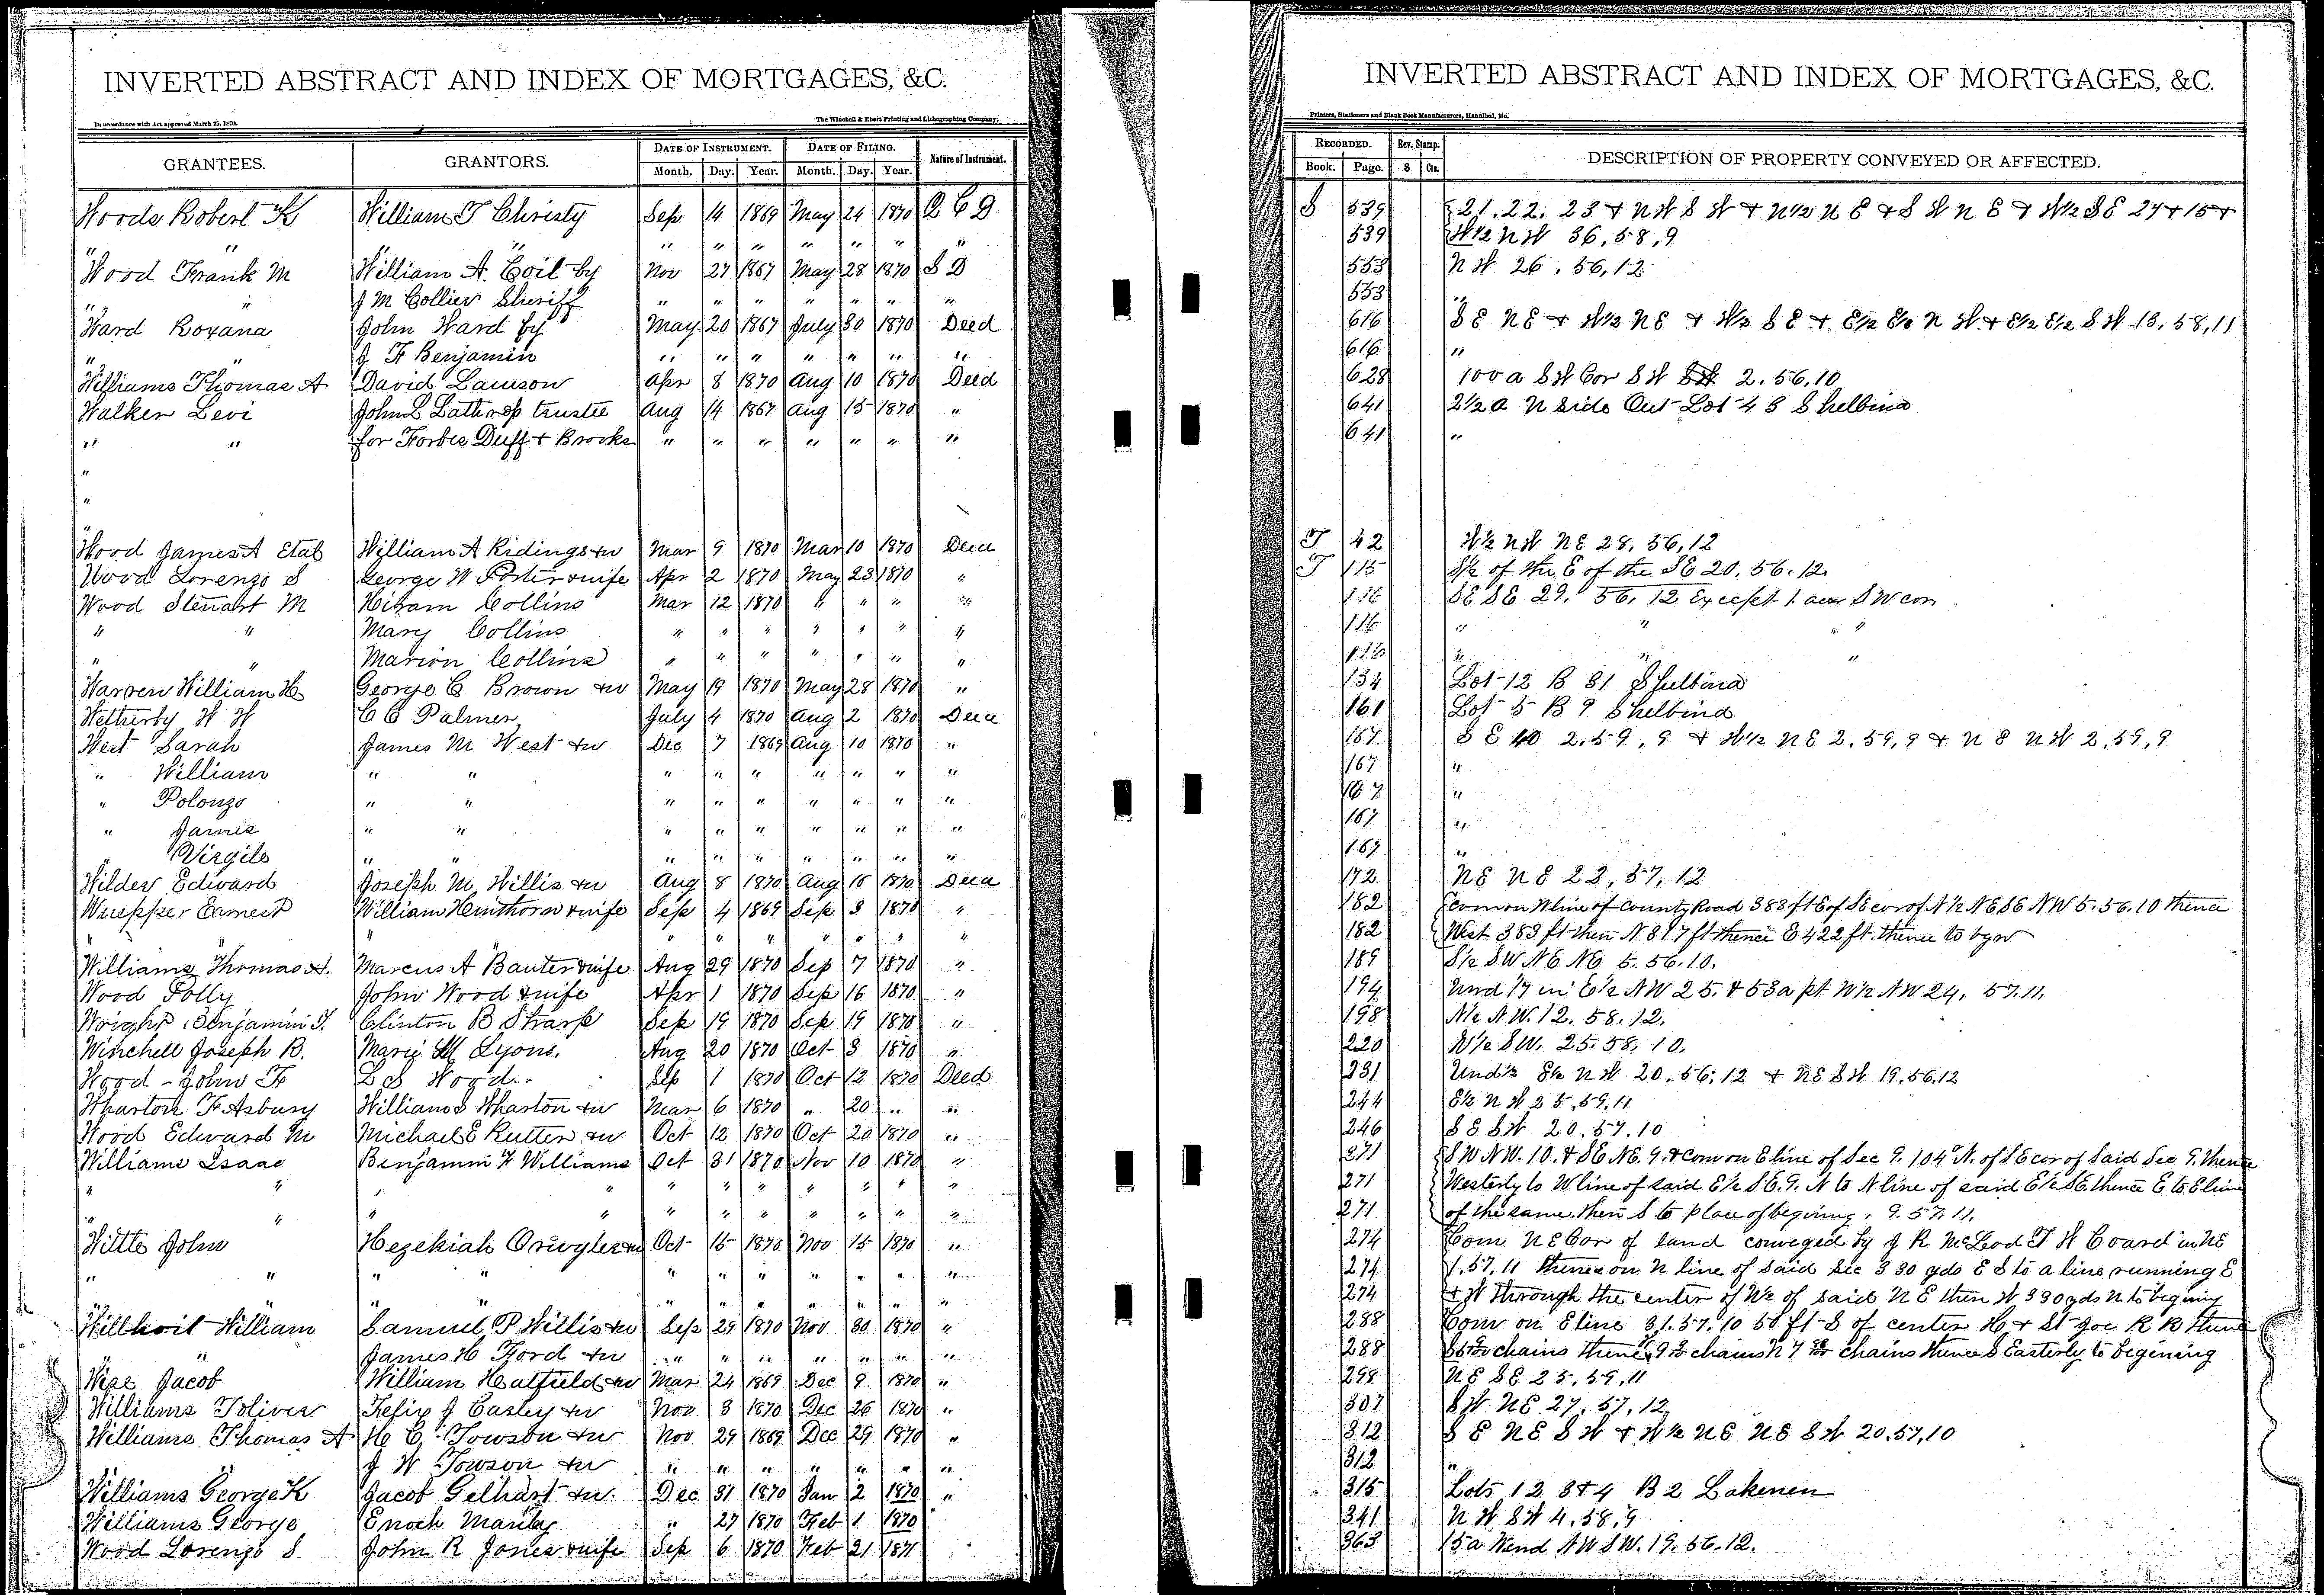 INVERTED ABSTRACT AND INDEX OF MORTGAGES, &C.
In accordance with Act approved March 25, 1870. The Winchell & Ebert Printing and Lithographing Company,
GRANTEES. GRANTORS. DATE OF INSTRUMENT. DATE OF FILING. Nature of Instrument.
Month. Day. Year. Month. Day. Year.
Woods Robert K William T Christy Sep 14 1869 May 24 1870 Q C D
" " " " " " " " " "
Wood Frank M William A. Coil by Nov 27 1867 May 28 1870 S D
" " J M Collier Sheriff " " " " " " "
Ward Roxana John Ward by May 20 1867 July 30 1870 Deed
" " J F Benjamin " " " " " " "
Williams Thomas A David Lamson Apr 8 1870 Aug 10 1870 Deed
Walker Levi John L Lathrop trustee Aug 14 1867 Aug 15 1870 "
" " for Forbes Duff & Brooks " " " " " " "
"
"
"
Wood James A Etal William A Ridings & w Mar 9 1870 Mar 10 1870 Deed
Wood Lorenzo S George W Porter & wife Apr 2 1870 May 23 1870 "
Wood Stewart M Hiram Collins Mar 12 1870 " " " "
" " Mary Collins " " " " " " "
" " Marion Collins " " " " " " "
Warren William H George C Brown & w May 19 1870 May 28 1870 "
Wetherby W W C C Palmer July 4 1870 Aug 2 1870 Deed
West Sarah James M West & w Dec 7 1869 Aug 10 1870 "
" William " " " " " " " " "
" Polonzo " " " " " " " " "
" James " " " " " " " " "
" Virgile " " " " " " " " "
Wilder Edward Joseph M Willis & w Aug 8 1870 Aug 16 1870 Deed
Wuepper Earnest William Hinthorn & wife Sep 4 1869 Sep 3 1870 "
" " " " " " " " "
Williams Thomas A. Marcus A Banter & wife Aug 29 1870 Sep 7 1870 "
Wood Polly John Wood & wife Apr 1 1870 Sep 16 1870 "
Wright Benjamin F. Clinton B Sharp Sep 19 1870 Sep 19 1870 "
Winchell Joseph B. Marie M Lyons. Aug 20 1870 Oct 3 1870 "
Wood - John F L S Wood Sep 1 1870 Oct 12 1870 Deed
Wharton F Asbury William S Wharton & w Mar 6 1870 " 20 " "
Wood Edward M Michael E Rutter & w Oct 12 1870 Oct 20 1870 "
Williams Isaac Benjamin F Williams Oct 31 1870 Nov 10 1870 "
" " " " " " " " " " "
" " " " " " " " " " "
Witte John Hezekiah & w Oct 15 1870 Nov 15 1870 "
" " " " " " " " " " "
" " " " " " " " " "
Willhoit William Samuel P Willis & w Sep 29 1870 Nov 30 1870 "
" " James H Ford & w " " " " " " "
Wise Jacob William Hatfield & w Mar 24 1869 Dec 9 1870 "
Williams Toliver Felix J Easley & w Nov 3 1870 Dec 26 1870 "
Williams Thomas A H C Towson & w Nov 29 1869 Dec 29 1870 "
" " J W Towson & w " " " " " " "
Williams George K Jacob Gelhart & w Dec 31 1870 Jan 2 1870 "
Williams George Enoch " 27 1870 Feb 1 1870
Wood Lorenzo S John R Jones & wife Sep 6 1870 Feb 21 1871
INVERTED ABSTRACT AND INDEX OF MORTGAGES, &C.
Printers, Stationers and Blank Book Manufacturers, Hannibal, Mo.
RECORDED. Rev. Stamp. DESCRIPTION OF PROPERTY CONVEYED OR AFFECTED.
Book. Page. $ Cts.
S 539 21. 22. 23 & N W S W & N 1/2 N E & S W N E & W 1/2 S E 27 & 15 &
539 W 1/2 N W 36, 58, 9
553 N W 26, 56, 12
553 "
616 S E N E & W 1/2 N E & W 1/2 S E & E 1/2 E 1/2 N W & E 1/2 E 1/2 S W 13, 58, 11
616 "
628 100 a S W Cor S W 2. 56, 10
641 2 1/2 a N side Out Lot 43 Shelbina
641 "
T 42 W 1/2 N W N E 28, 56, 12
T 115 S 1/2 of the E of the S E 20. 56. 12.
116 S E S E 29. 56. 12 Except 1. acre S W cor
116 " " "
116 " " "
134 Lot 12 B 31 Shelbina
161 Lot 5 B 9 Shelbina
167 S E 40 2. 59, 9 & W 1/2 N E 2, 59, 9 & N E N W 2, 59, 9
167 "
167 "
167 "
167 "
172 N E N E 23, 57, 12
182 Com on W line of County Road 383 ft E of S E cor of N 1/2 N E S E N W 5. 56. 10 thence
182 West 383 ft then N. 817 ft thence E 422 ft. thence to bgn
189 S 1/2 S W N E N E 5. 56. 10.
194 Und 1/7 in E 1/2 N W 25. & 53 a pt W 1/2 N W 24, 57. 11.
198 N 1/2 N W. 12. 58. 12.
220 W 1/2 S W. 25. 58. 10.
231 Und 1/2 S 1/2 N W 20. 56; 12 & N E S W 19, 56, 12
244 E 1/2 N W 25, 59, 11
246 S E S W 20. 57. 10
271 S W N W. 10. & S E N E. 9. & Com on E line of Sec 9. 104° N. of S E cor of Said Sec 9. thence
271 Westerly to W line of said E 1/2 S E. 9. N to N line of said E 1/2 S E. thence E. to E line
271 of the same. then S to place of begining. 9. 57. 11.
274 Com N E Cor of land conveged by J R McLeod T W Coard in N E
274 1. 57, 11 thence on N line of said Sec 330 yds E S to a line running E
274 & W through the center of W 1/2 of said N E then W 330 yds N to begining
288 Com on E line 31. 57. 10 50 ft S of center H & St Joe R R thence
288 chains thence chains N 7 chains thence S Easterly to begining
298 N E S E 25. 59, 11
307 S W N E 27, 57, 12
312 S E N E S W & W 1/2 N E N E S W 20. 57, 10
312 "
315 Lots 1 2 3 & 4 B 2 Lakenen
341 N W S W 4. 58. 9
363 15 a W end N W S W. 19. 56. 12.